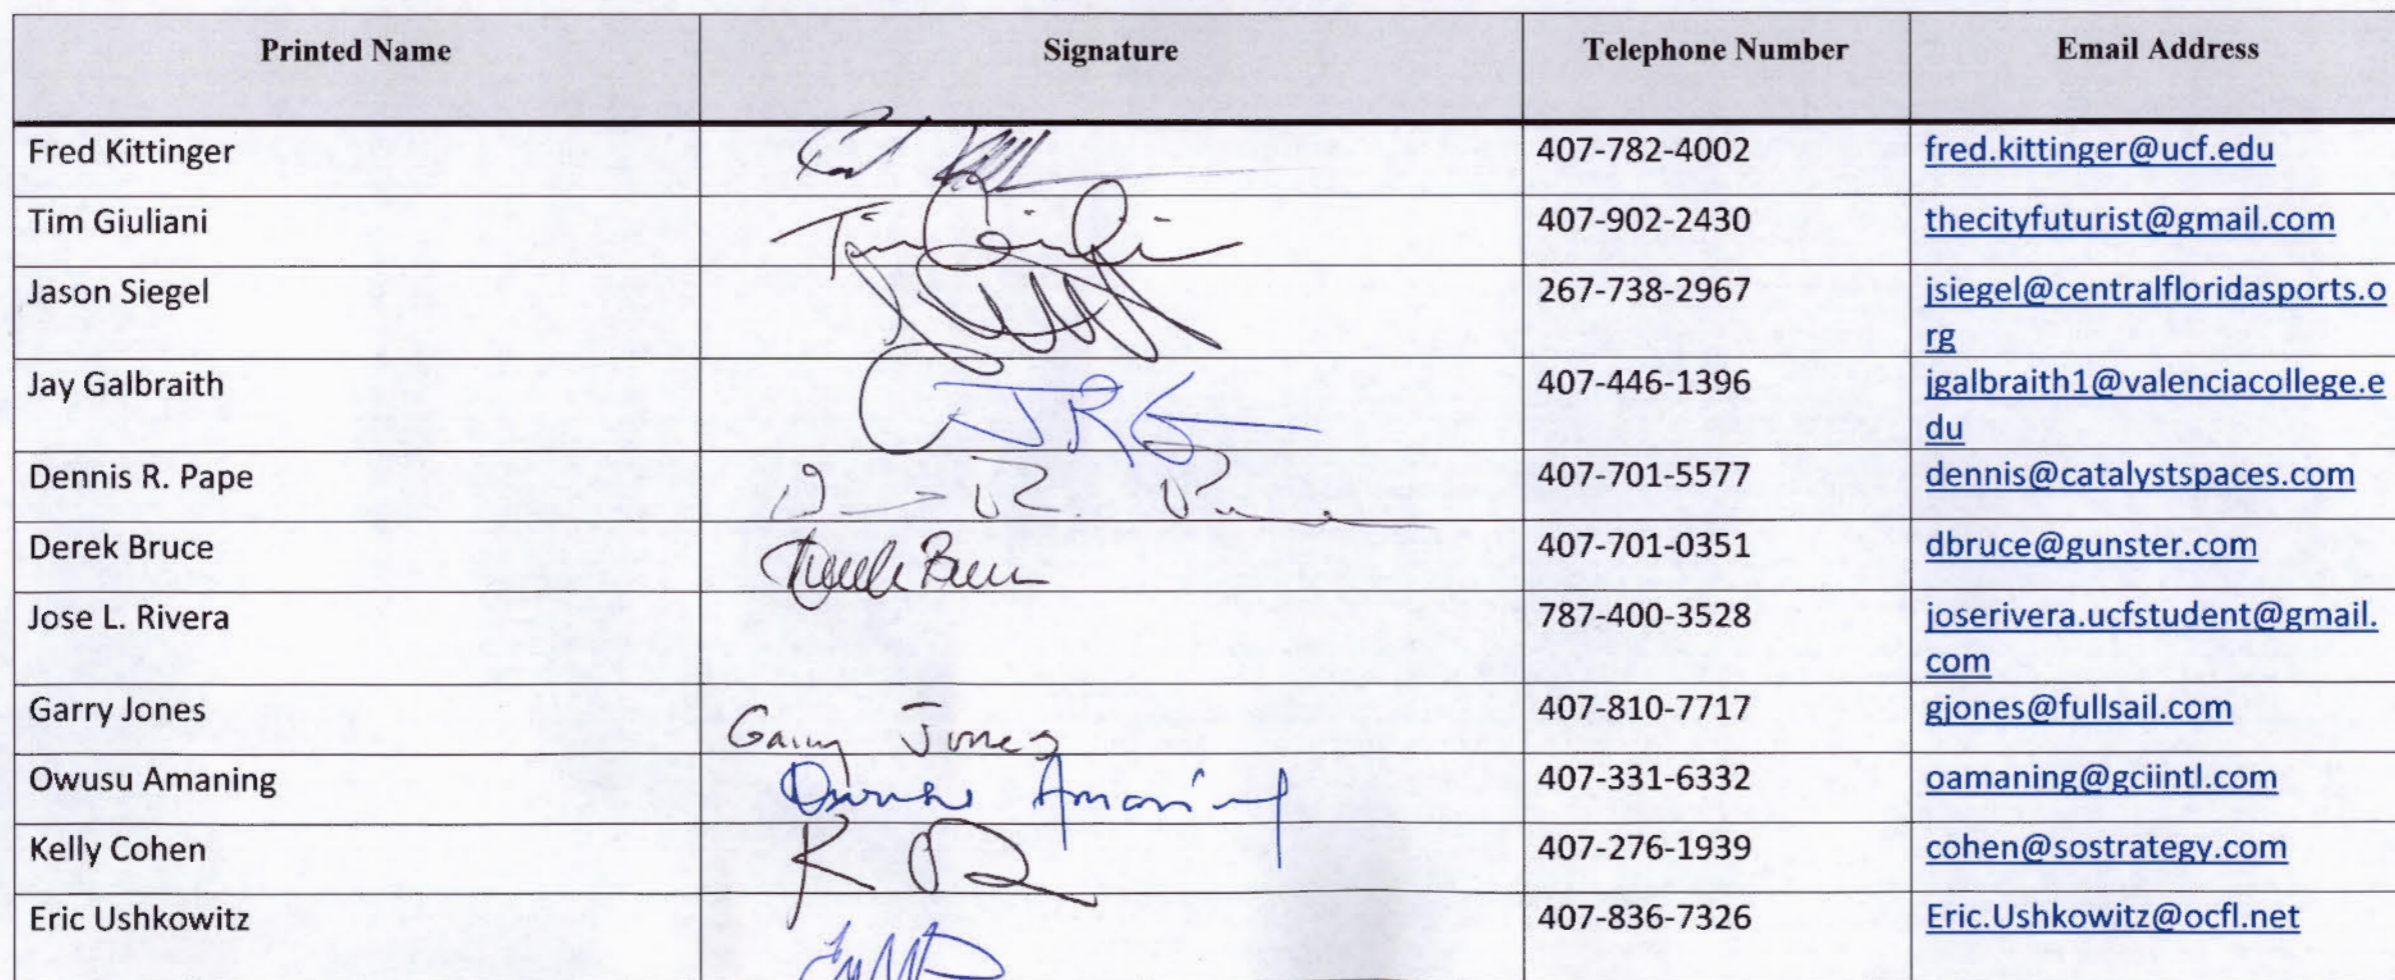 Printed Name Signature Telephone Number Email Address
Fred Kittinger 407-782-4002 fred.kittinger@ucf.edu
Tim Giuliani 407-902-2430 thecityfuturist@gmail.com
Jason Siegel 267-738-2967 jsiegel@centralfloridasports.o
rg
Jay Galbraith JRG 407-446-1396 jgalbraith1@valenciacollege.e
du
Dennis R. Pape 407-701-5577 dennis@catalystspaces.com
Derek Bruce 407-701-0351 dbruce@gunster.com
Jose L. Rivera 787-400-3528 joserivera.ucfstudent@gmail.
com
Garry Jones Garry Jones 407-810-7717 gjones@fullsail.com
Owusu Amaning Owusu Amaning 407-331-6332 oamaning@gciintl.com
Kelly Cohen 407-276-1939 cohen@sostrategy.com
Eric Ushkowitz 407-836-7326 Eric.Ushkowitz@ocfl.net